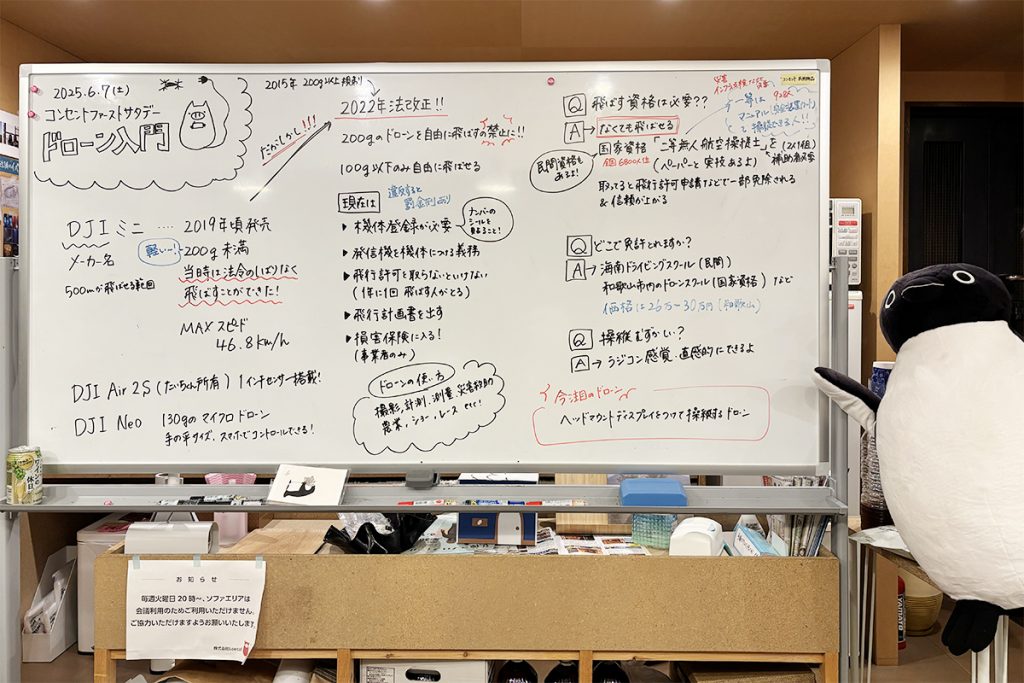 2025.6.7(土)
コンセントファーストサタデー
ドローン入門
DJIミニ ････ 2019年頃発売
メーカー名
軽いー!
200g未満
500mが飛ばせる範囲
当時は法令のしばりなく
飛ばすことができた!
MAXスピード
46.8km/h
DJI Air 2S (だいちゃん所有) 1インチセンサー搭載!
DJI Neo 130gのマイクロドローン
手の平サイズ、スマホでコントロールできる!
2015年 200g以上規制
だがしかし!!!
2022年法改正!!
200gのドローンを自由に飛ばすの禁止に!!
100g以下のみ自由に飛ばせる
現在は
違反すると
罰金刑あり
▶ 機体登録が必要
ナンバーの
シールを
貼ること!
▶ 発信機を機体につける義務
▶ 飛行許可を取らないといけない
(1年に1回 飛ばす人がとる)
▶ 飛行計画書を出す
▶ 損害保険に入る!
(事業者のみ)
ドローンの使い方
撮影、計測、測量、災害救助
農業、ショー、レース etc!
Q 飛ばす資格は必要??
A → なくても飛ばせる
国家資格「二等無人航空操縦士」を
(2人1組)
補助者必要
全国6800人位
(ペーパーと実技あるよ)
民間資格も
あるよ!
取ってると飛行許可申請などで一部免除される
& 信頼が上がる
災害
インフラ点検だと
一等は
マニュアル
で操縦できる人!!
Q どこで免許とれますか?
A → 海南ドライビングスクール(民間)
和歌山市内のドローンスクール(国家資格) など
価格は26万〜30万円(和歌山)
Q 操縦むずかしい?
A → ラジコン感覚、直感的にできるよ
今注目のドローン
ヘッドマウントディスプレイをつけて操縦するドローン
コンセント 共同備品
お知らせ
毎週火曜日20時〜、ソファエリアは
会議利用のためご利用いただけません。
ご協力いただけますようお願いいたします。
株式会社
YAMATO
休日